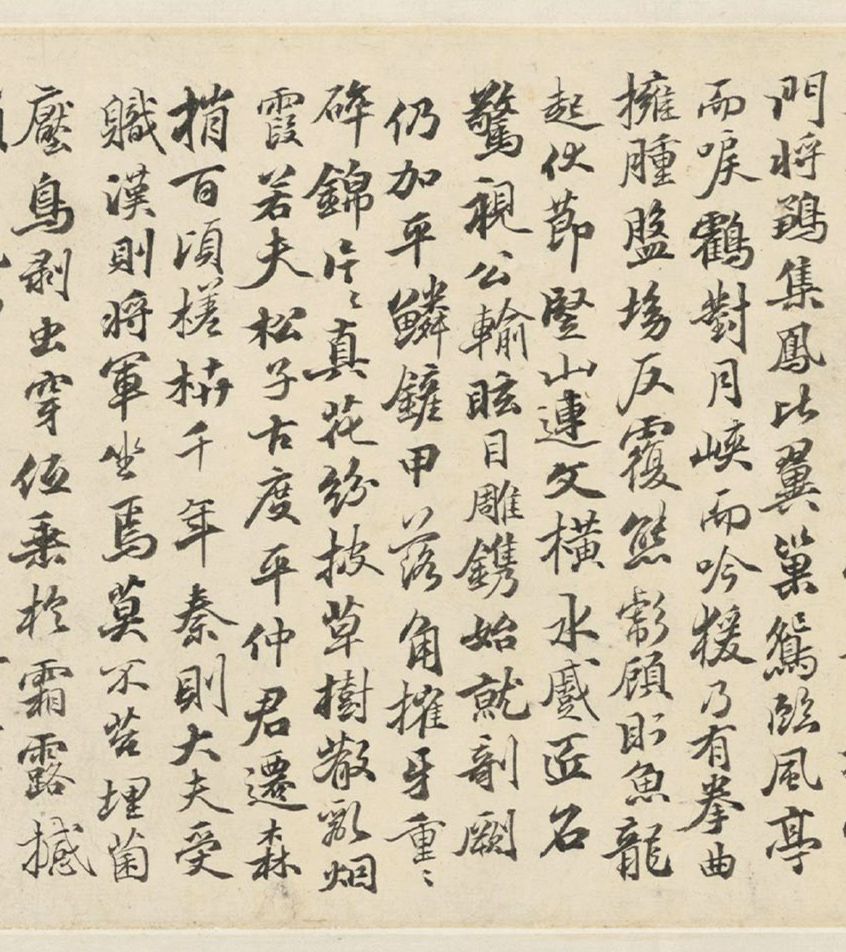 門將鶵集鳳比翼巢鴛臨風亭
而唳鶴對月峽而吟猨乃有拳曲
擁腫盤坳反覆熊彪顧盼魚龍
起伏節竪山連文橫水蹙匠石
驚視公輸眩目雕鐫始就剞劂
仍加平鱗鏟甲落角摧牙重〻
碎錦片〻真花紛披草樹散亂烟
霞若夫松子古度平仲君遷森
梢百頃槎枿千年秦則大夫受
軄漢則將軍坐焉莫不苔埋菌
壓鳥剥虫穿低垂於霜露撼